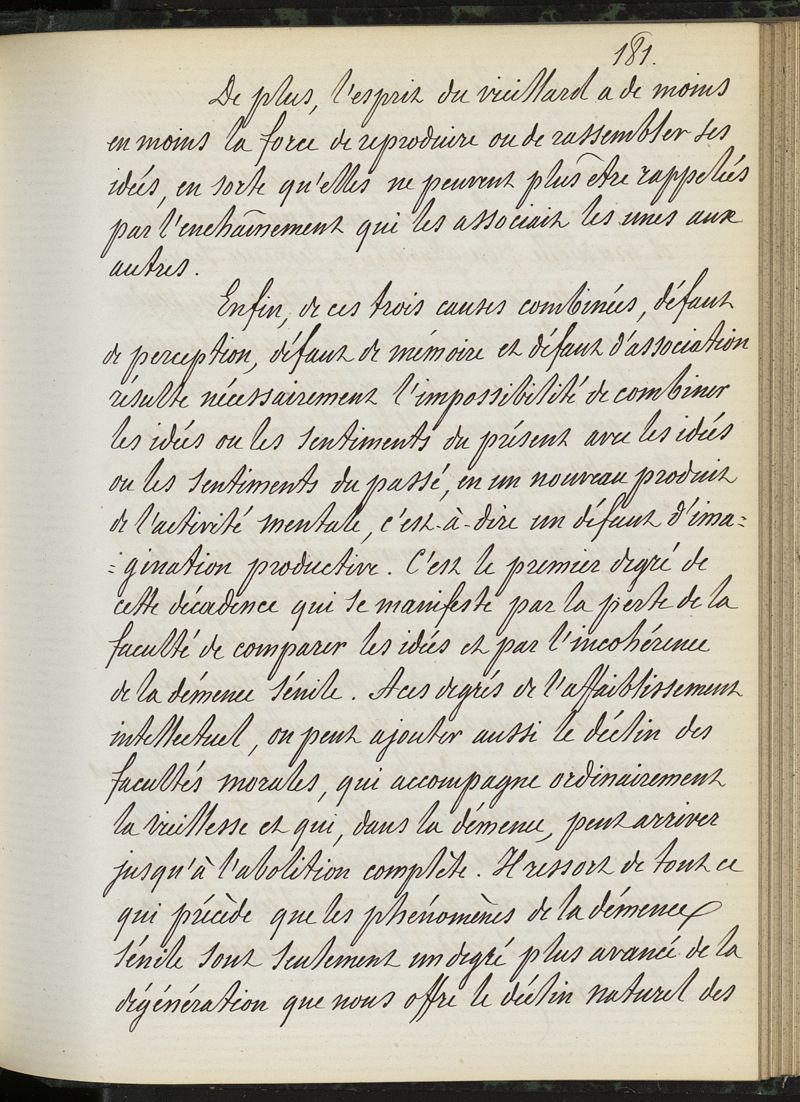 181.
De plus, l'esprit du vieillard a de moins
en moins la force de reproduire ou de rassembler ses
idées, en sorte qu'elles ne peuvent plus être rappelées
par l'enchaînement qui les associait les unes aux
autres.
Enfin, de ces trois causes combinées, défaut
de perception, défaut de mémoire et défaut d'association
résulte nécessairement l'impossibilité de combiner
les idées ou les sentiments du présent avec les idées
ou les sentiments du passé, en un nouveau produit
de l'activité mentale, c'est-à-dire un défaut d'ima=
=gination productive. C'est le premier degré de
cette décadence qui se manifeste par la perte de la
faculté de comparer les idées et par l'incohérence
de la démence sénile. A ces degrés de l'affaiblissement
intellectuel, on peut ajouter aussi le déclin des
facultés morales, qui accompagne ordinairement
la vieillesse et qui, dans la démence, peut arriver
jusqu'à l'abolition complète. Il ressort de tout ce
qui précède que les phénomènes de la démence
sénile sont seulement un degré plus avancé de la
dégénération que nous offre le déclin naturel des